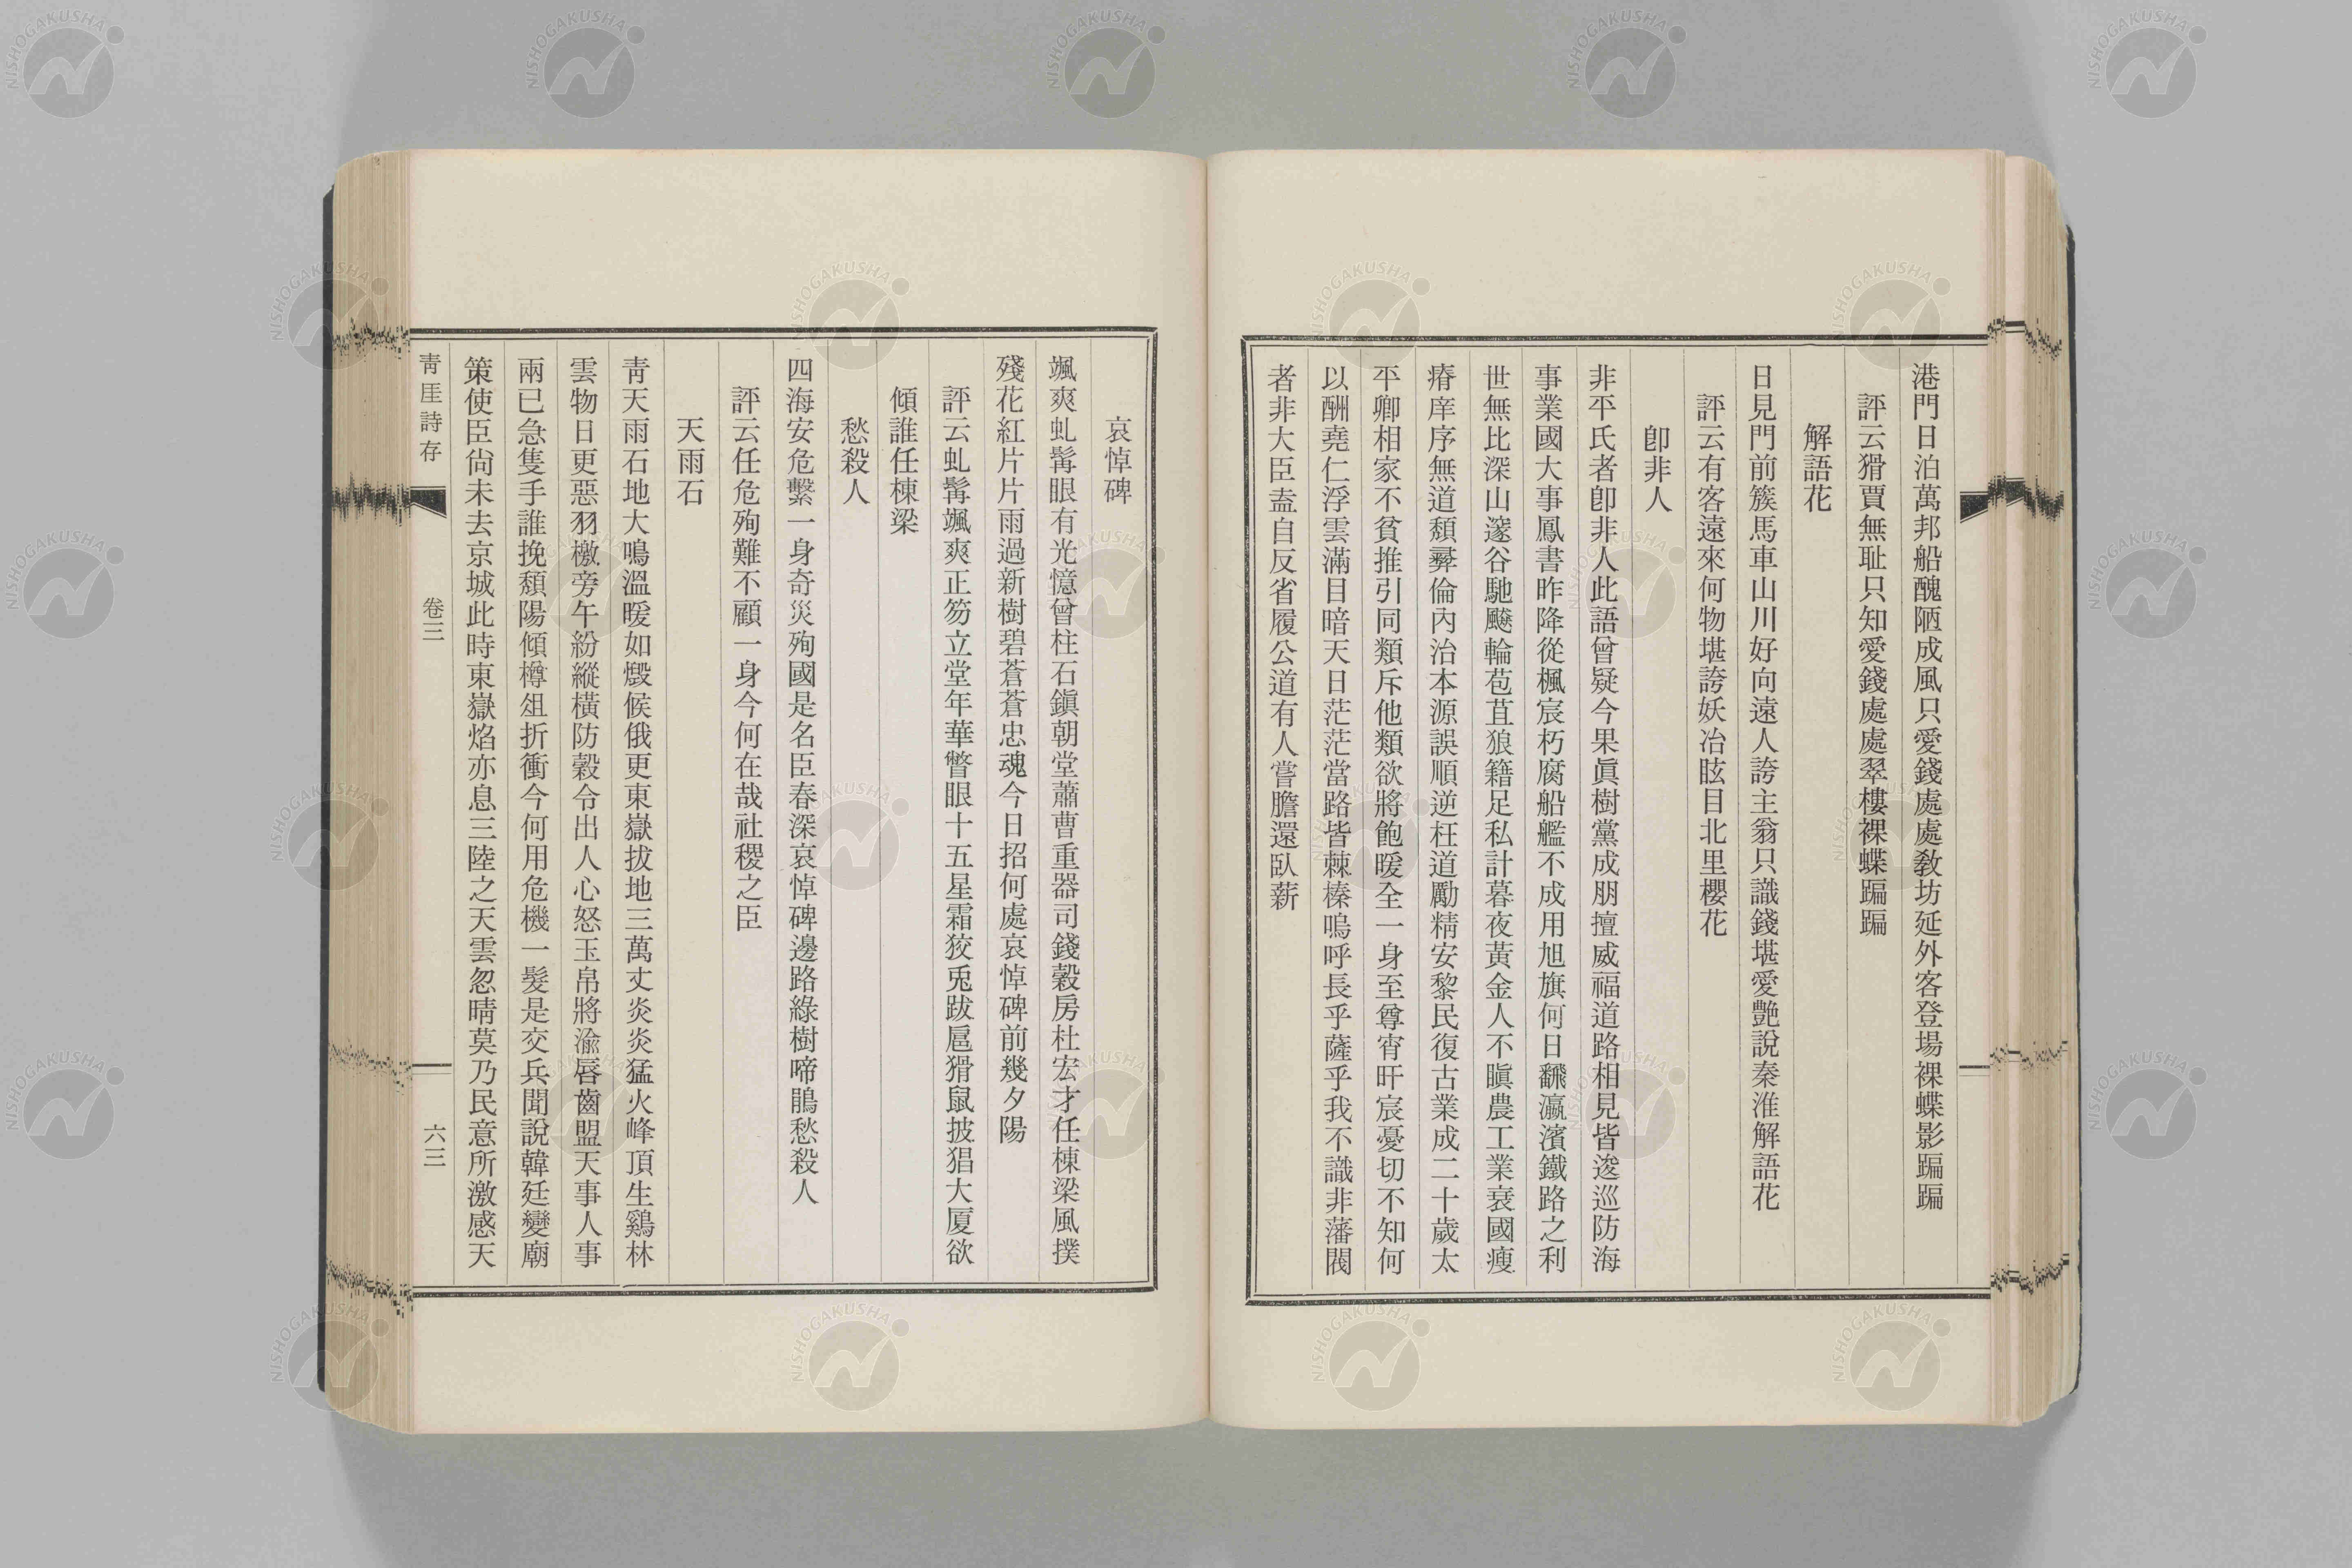 港門日泊萬邦船醜陋成風只愛錢處處教坊延外客登場裸蝶影蹁蹁
評云猾賈無耻只知愛錢處處翠樓裸蝶蹁蹁
解語花
日見門前簇馬車山川好向遠人誇主翁只識錢堪愛艷說秦淮解語花
評云有客遠來何物堪誇妖冶眩目北里櫻花
卽非人
非平氏者卽非人此語曾疑今果眞樹黨成朋擅威福道路相見皆逡巡防海
事業國大事鳳書昨降從楓宸朽腐船艦不成用旭旗何日飜瀛濱鐵路之利
世無比深山邃谷馳颷輪苞苴狼籍足私計暮夜黃金人不瞋農工業衰國瘦
瘠庠序無道頽彛倫內治本源誤順逆枉道勵精安黎民復古業成二十歲太
平卿相家不貧推引同類斥他類欲將飽暖全一身至尊宵旰宸憂切不知何
以酬堯仁浮雲滿目暗天日茫茫當路皆棘榛嗚呼長乎薩乎我不識非藩閥
者非大臣盍自反省履公道有人嘗膽還臥薪
哀悼碑
颯爽虬髯眼有光憶曾柱石鎭朝堂蕭曹重器司錢穀房杜宏才任棟梁風撲
殘花紅片片雨過新樹碧蒼蒼忠魂今日招何處哀悼碑前幾夕陽
評云虬髯颯爽正笏立堂年華瞥眼十五星霜狡兎跋扈猾鼠披猖大厦欲
傾誰任棟梁
愁殺人
四海安危繫一身奇災殉國是名臣春深哀悼碑邊路綠樹啼鵑愁殺人
評云任危殉難不顧一身今何在哉社稷之臣
天雨石
靑天雨石地大鳴溫暖如燬候俄更東嶽拔地三萬丈炎炎猛火峰頂生鷄林
雲物日更惡羽檄旁午紛縱橫防穀令出人心怒玉帛將渝唇齒盟天事人事
兩已急隻手誰挽頽陽傾樽俎折衝今何用危機一髮是交兵聞說韓廷變廟
策使臣尙未去京城此時東嶽焰亦息三陸之天雲忽晴莫乃民意所激感天
靑厓詩存
卷三
六三